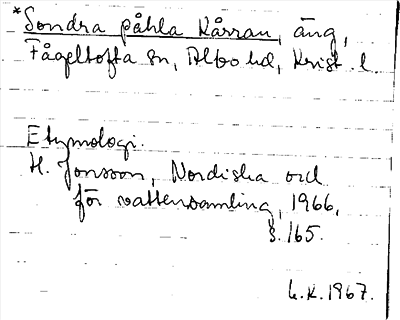 *Sondra påhla Kårran, äng,
Fågeltofta sn, Albo hd, Krist. l.
Etymologi.
H. Jonsson, Nordiska ord
för vattensamling, 1966,
§. 165.
L.K. 1967.